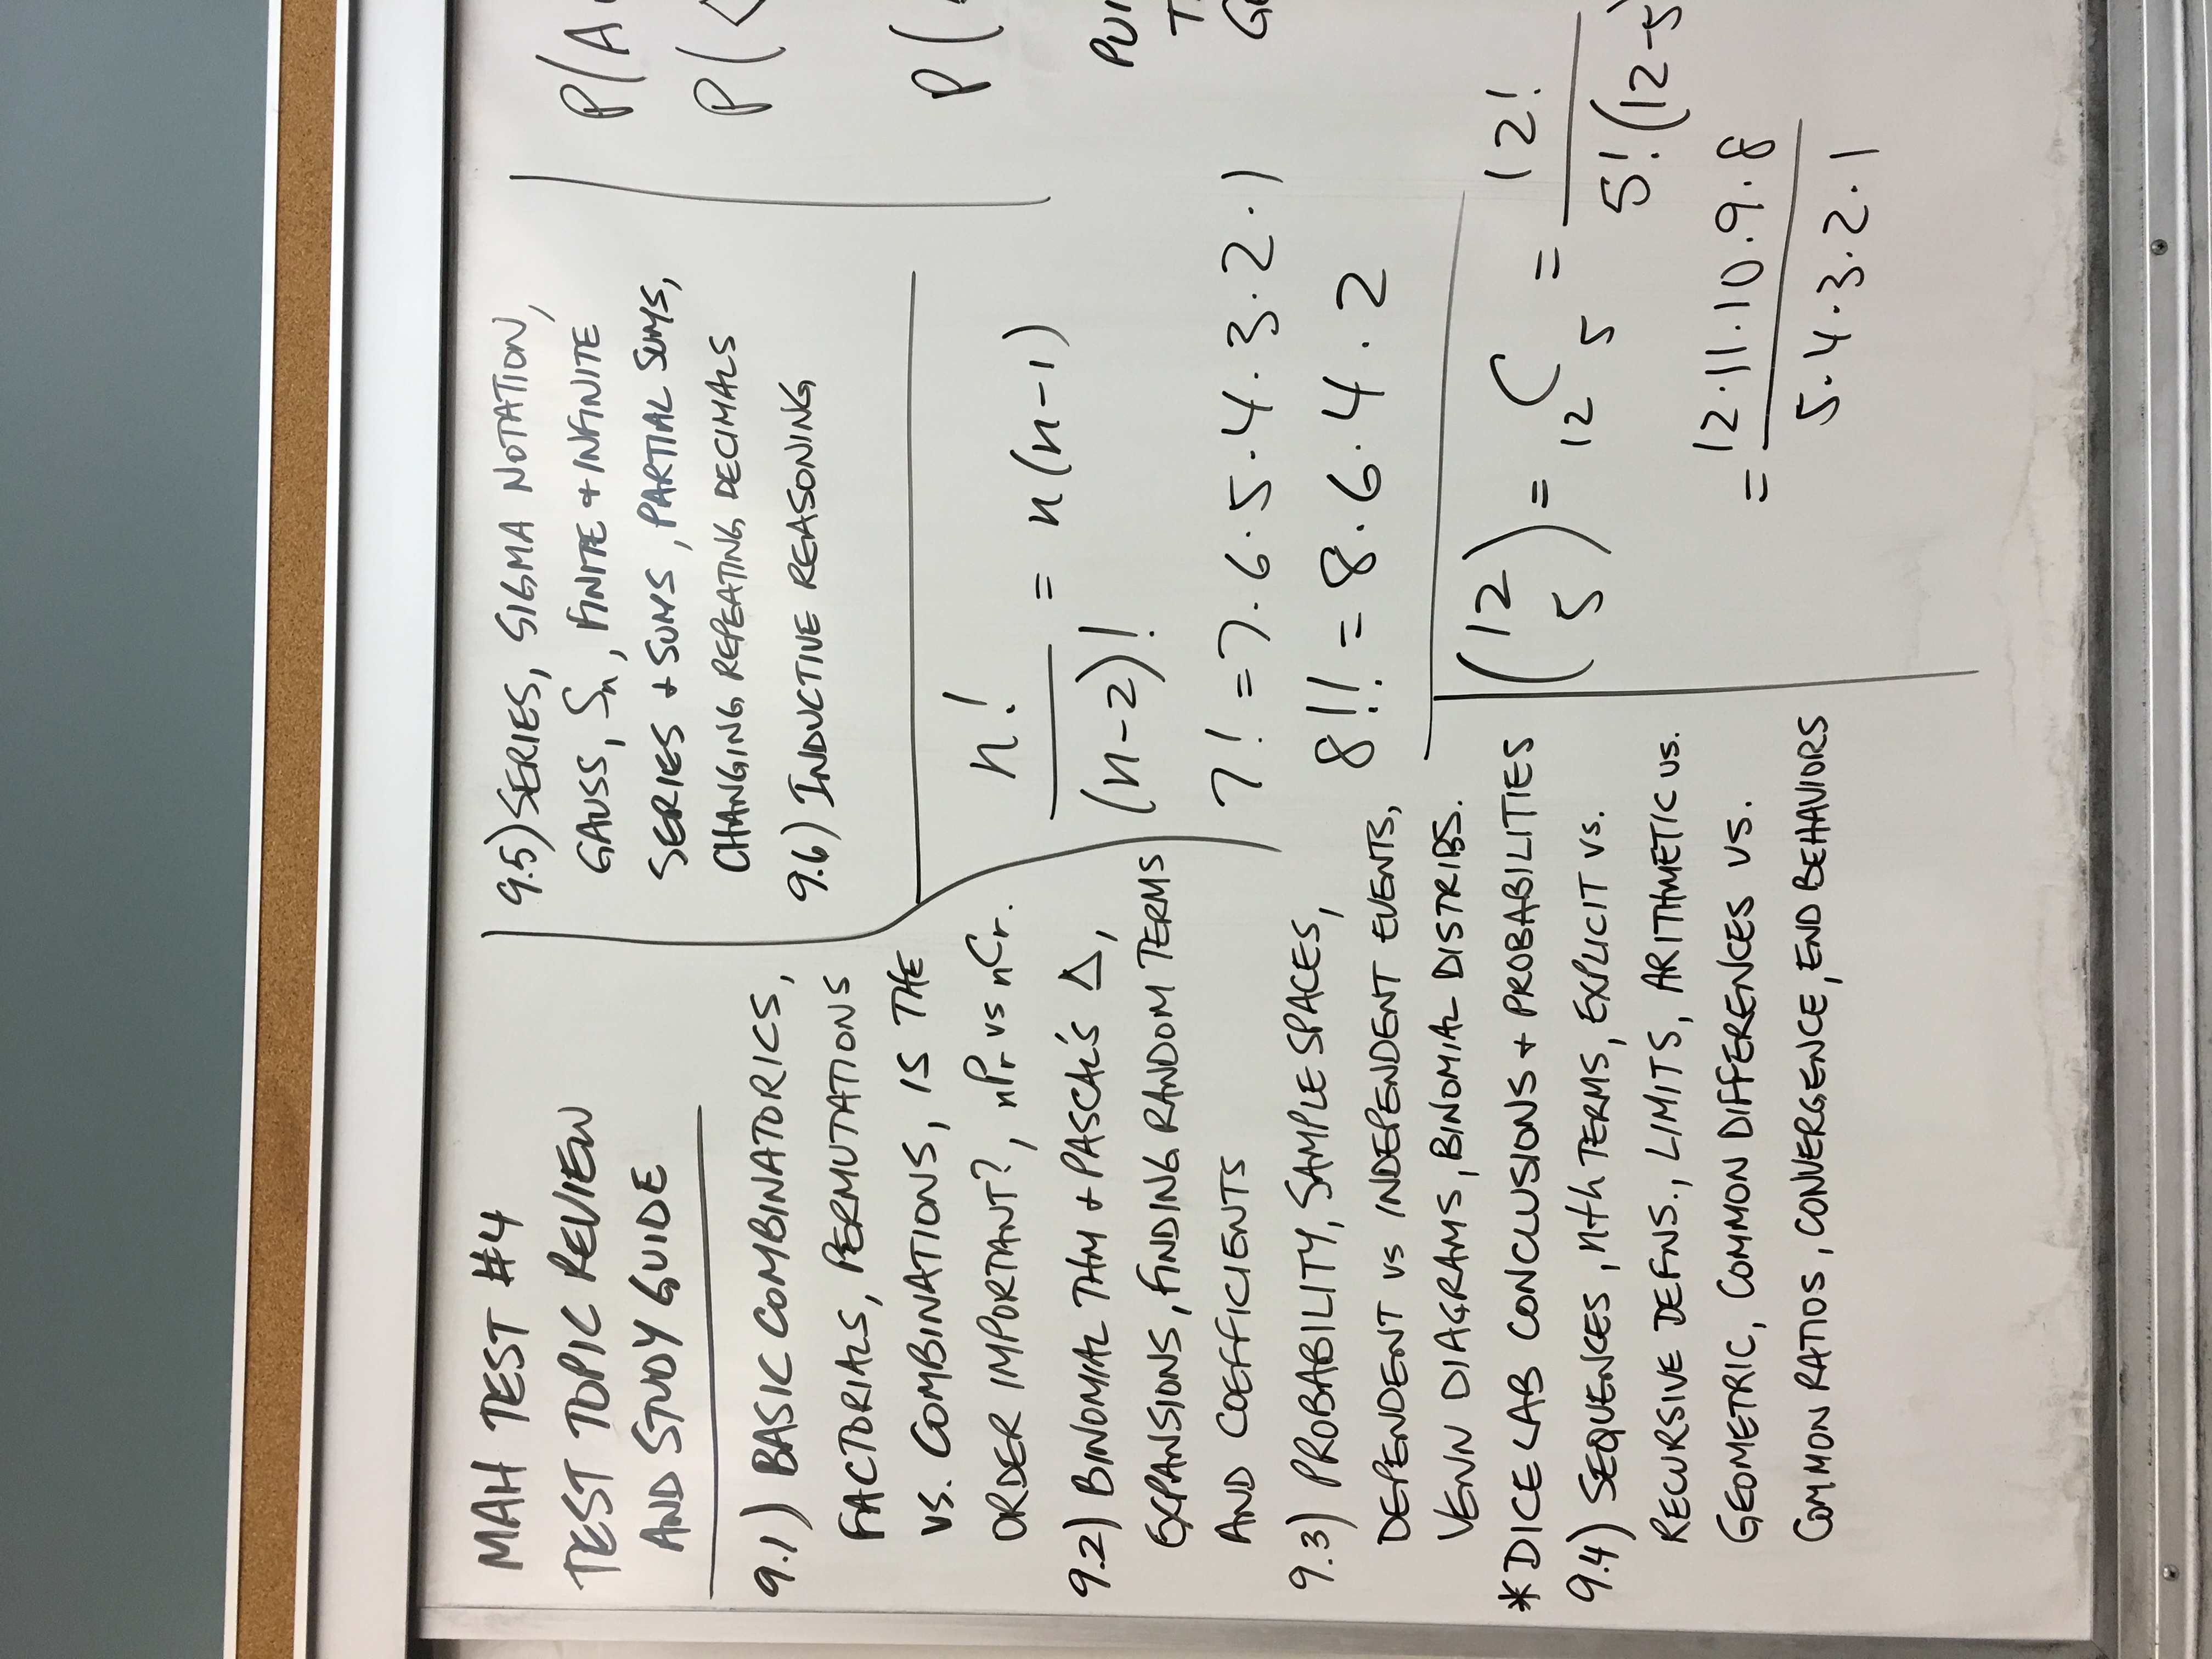 MAH TEST #4
TEST TOPIC REVIEW
AND STUDY GUIDE
9.1) BASIC COMBINATORICS,
FACTORIALS, PERMUTATIONS
VS. COMBINATIONS, IS THE
ORDER IMPORTANT?, nPr vs nCr.
9.2) BINOMIAL THM + PASCAL'S Δ,
EXPANSIONS, FINDING RANDOM TERMS
AND COEFFICIENTS
9.3) PROBABILITY, SAMPLE SPACES,
DEPENDENT vs INDEPENDENT EVENTS,
VENN DIAGRAMS, BINOMIAL DISTRIBS.
*DICE LAB CONCLUSIONS + PROBABILITIES
9.4) SEQUENCES, nth TERMS, EXPLICIT vs.
RECURSIVE DEFNS., LIMITS, ARITHMETIC vs.
GEOMETRIC, COMMON DIFFERENCES VS.
COMMON RATIOS, CONVERGENCE, END BEHAVIORS
9.5) SERIES, SIGMA NOTATION,
GAUSS, Sn, FINITE + INFINITE
SERIES + SUMS, PARTIAL SUMS,
CHANGING REPEATING DECIMALS
9.6) INDUCTIVE REASONING
n!
= n(n-1)
(n-2)!
7! = 7·6·5·4·3·2·1
8!! = 8·6·4·2
(12 5) = 12C5 = 12!
5!(12-5)
= 12·11·10·9·8
5·4·3·2·1
P(A
P(
P(